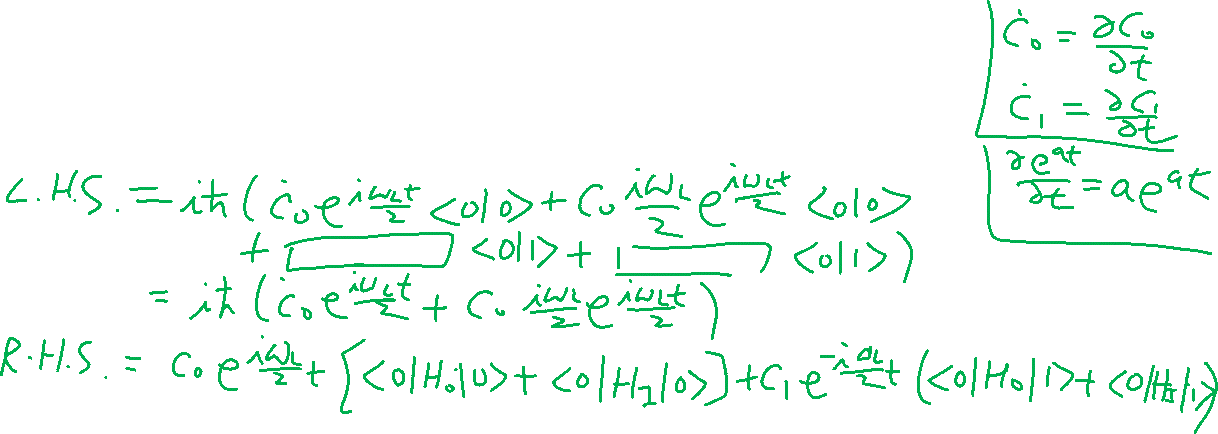 Ċ₀ = ∂C₀/∂t
Ċ₁ = ∂C₁/∂t
∂e^{at}/∂t = ae^{at}
L.H.S. = iħ(ċ₀e^{iω_L t/2}<0|0> + C₀ iω_L/2 e^{iω_L t/2} <0|0>
+ <0|1> + <0|1>)
= iħ(ċ₀e^{iω_L t/2} + C₀ iω_L/2 e^{iω_L t/2})
R.H.S. = C₀e^{iω_L/2 t}{<0|H₀|0> + <0|H_I|0>} + C₁e^{-iω_L/2 t}(<0|H₀|1> + <0|H_I|1>)